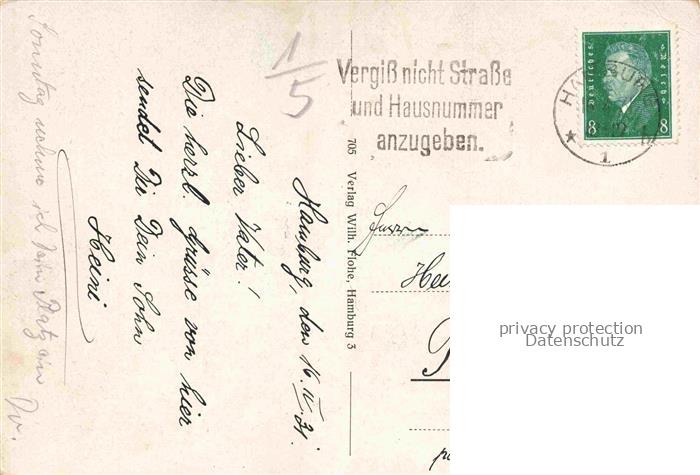 1/5
Vergiß nicht Straße
und Hausnummer
anzugeben.
Deutsches Reich
8 8
HAMBURG
1
Hamburg, den 16.IV.31.
Lieber Vater!
Die herzl. Grüsse von hier
sendet Dir Dein Sohn
Heini
Sonntag nehme ich den Platz ein
705 Verlag Wilh. Flohe, Hamburg 3
Herrn
Hei
privacy protection
Datenschutz